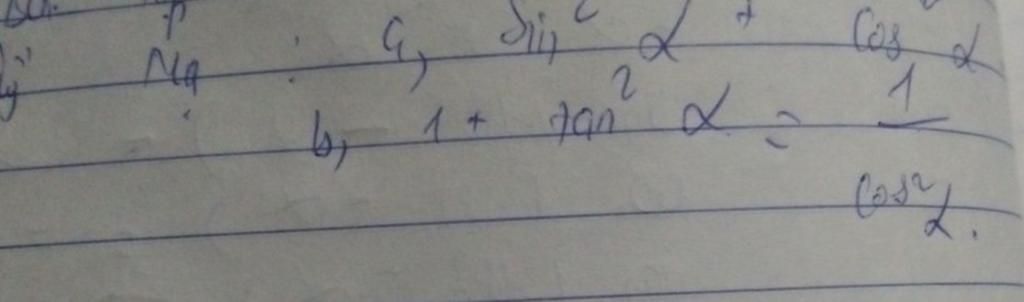 a, sin² α + cos² α
b, 1 + tan² α = 1 / cos² α.